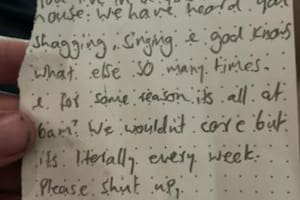 house. We have heard you
shagging, singing & god knows
what else SO many times.
& for some reason its all at
6am? We wouldnt care but
its literally every week.
Please shut up,